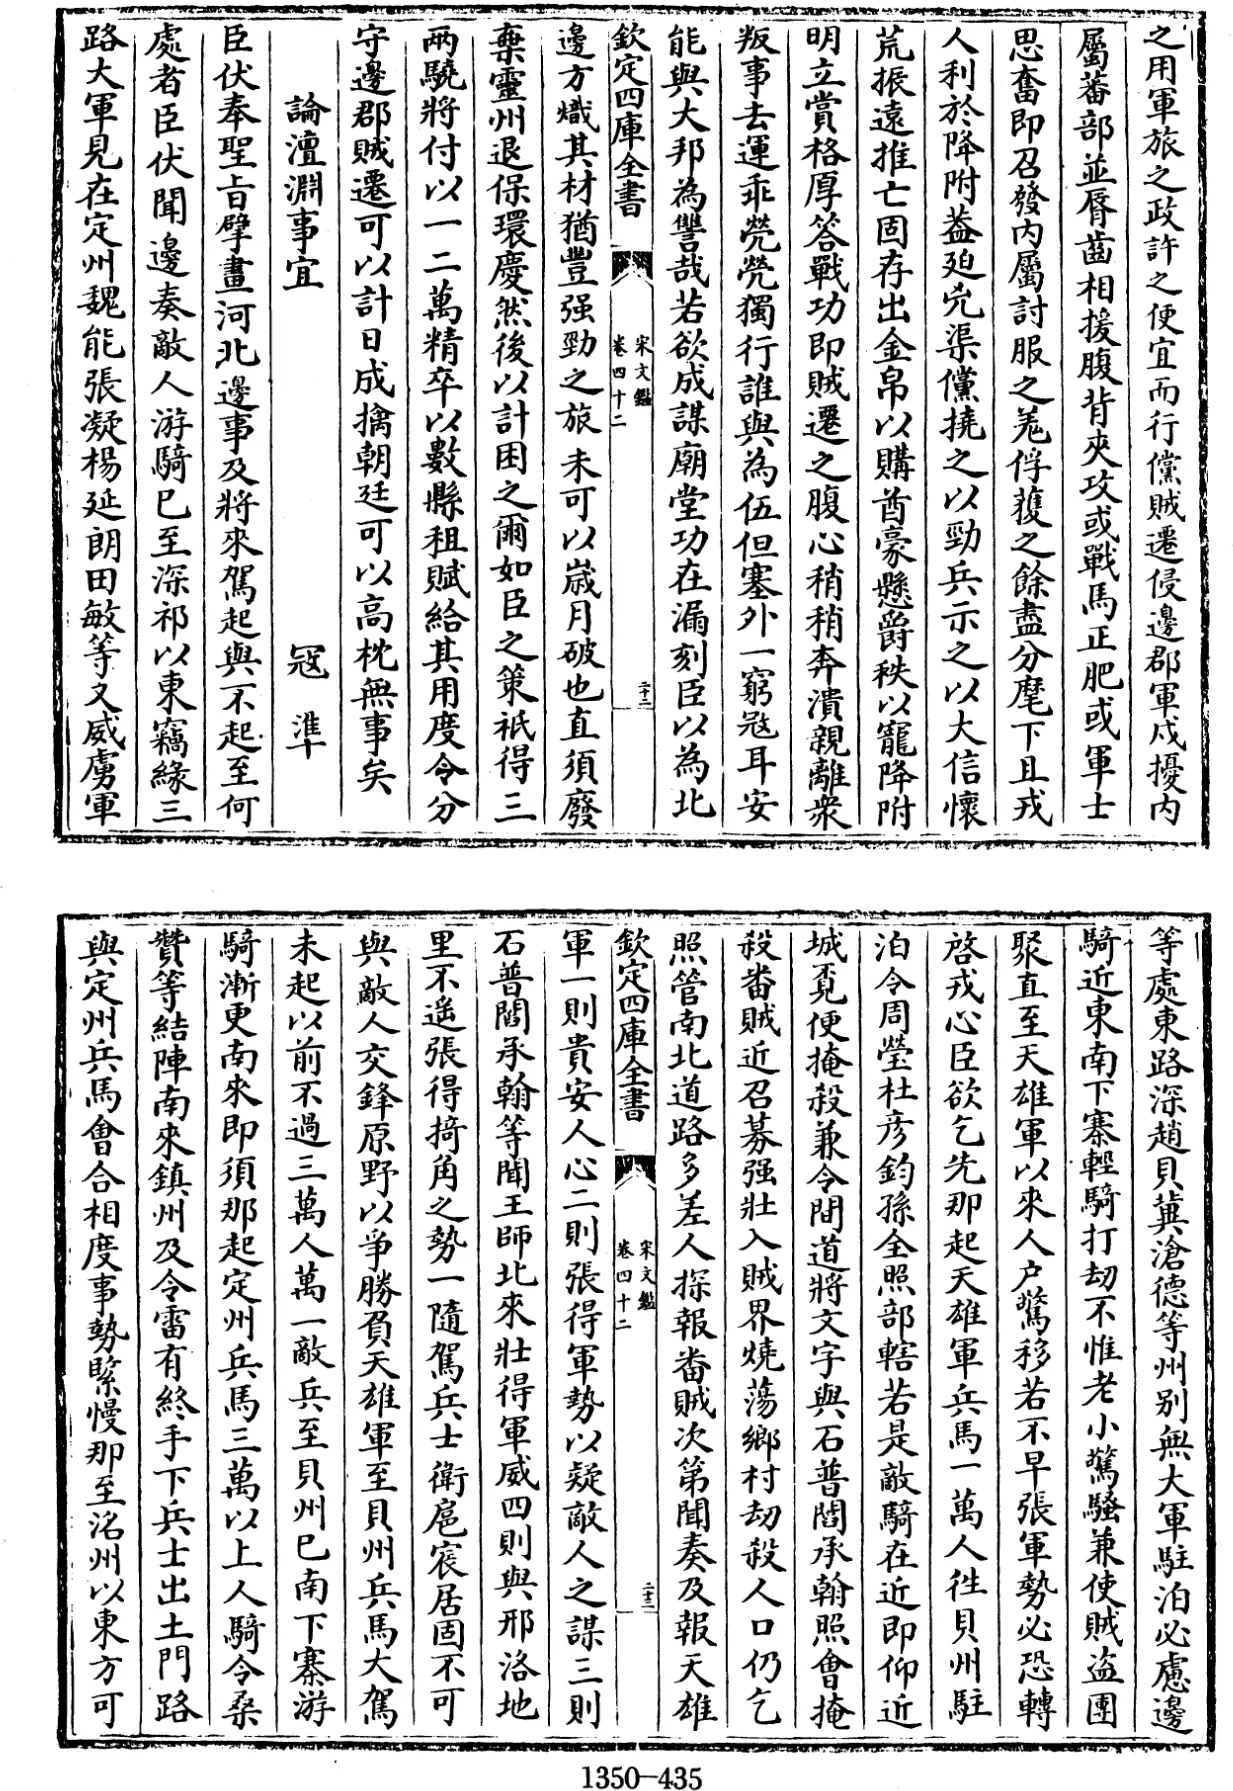 之用軍旅之政許之便宜而行儻賊遷侵邊郡軍戍擾内
屬蕃部並脣齒相援腹背夾攻或戰馬正肥或軍士
思奮即召發内屬討服之羗俘獲之餘盡分麾下且戎
人利於降附葢廹兇渠儻撓之以勁兵示之以大信懷
荒振遠推亡固存出金帛以購酋豪懸爵秩以寵降附
明立賞格厚答戰功即賊遷之腹心稍稍奔潰親離衆
叛事去運乖煢煢獨行誰與為伍但塞外一窮冦耳安
能與大邦為讐哉若欲成謀廟堂功在漏刻臣以為北
欽定四庫全書
宋文鑑
卷四十二
二十二
邊方熾其材猶豐强勁之旅未可以嵗月破也直須廢
棄靈州退保環慶然後以計困之爾如臣之策祇得三
兩驍將付以一二萬精卒以數縣租賦給其用度令分
守邊郡賊遷可以計日成擒朝廷可以高枕無事矣
論澶淵事宜 冦準
臣伏奉聖㫖擘畫河北邊事及將來駕起與不起至何
處者臣伏聞邊奏敵人游騎已至深祁以東竊緣三
路大軍見在定州魏能張凝楊延朗田敏等又威虜軍
等處東路深趙貝冀滄德等州别無大軍駐泊必慮邊
騎近東南下寨輕騎打刼不惟老小驚騷兼使賊盗團
聚直至天雄軍以來人户驚移若不早張軍勢必恐轉
啓戎心臣欲乞先那起天雄軍兵馬一萬人徃貝州駐
泊令周瑩杜彦鈞孫全照部轄若是敵騎在近即仰近
城覔便掩殺兼令間道將文字與石普閻承翰照會掩
殺畨賊近召募强壯入賊界燒蕩鄉村刼殺人口仍乞
照管南北道路多差人探報畨賊次第聞奏及報天雄
欽定四庫全書
宋文鑑
卷四十二
二十三
軍一則貴安人心二則張得軍勢以疑敵人之謀三則
石普閻承翰等聞王師北來壯得軍威四則與邢洺地
里不遥張得掎角之勢一隨駕兵士衛扈宸居固不可
與敵人交鋒原野以爭勝負天雄軍至貝州兵馬大駕
未起以前不過三萬人萬一敵兵至貝州已南下寨游
騎漸更南來即須那起定州兵馬三萬以上人騎令桑
贊等結陣南來鎮州及令雷有終手下兵士出土門路
與定州兵馬會合相度事勢緊慢那至洺州以東方可
1350-435